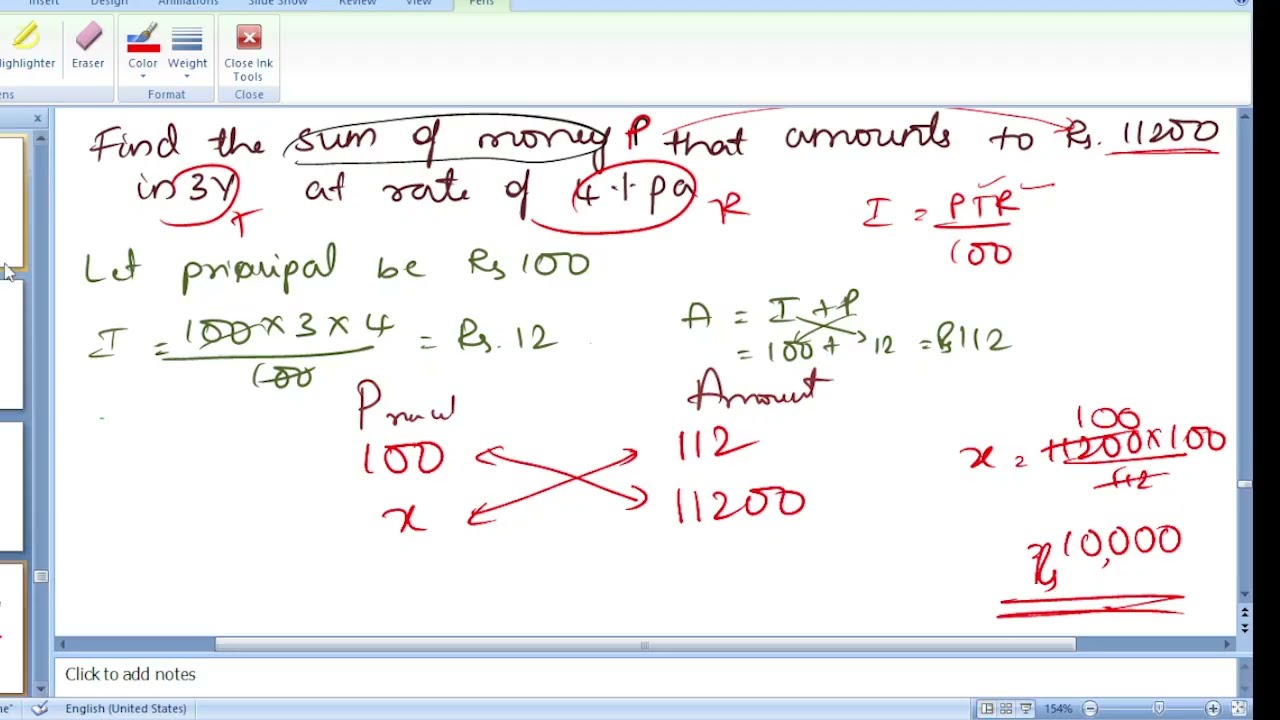 Insert Design Animations Slide Show Review View Pens
Highlighter Eraser Color Weight Close Ink Tools
Pens Format Close
Find the sum of money P that amounts to Rs. 11200
in 3Y at rate of 4% pa
T R
I = PTR
100
Let principal be Rs 100
I = 100 × 3 × 4 = Rs. 12
100
A = I + P
= 100 + 12 = Rs 112
Amount
100 112
x 11200
100
x = 11200 × 100
112
Rs 10,000
Click to add notes
English (United States) 154%